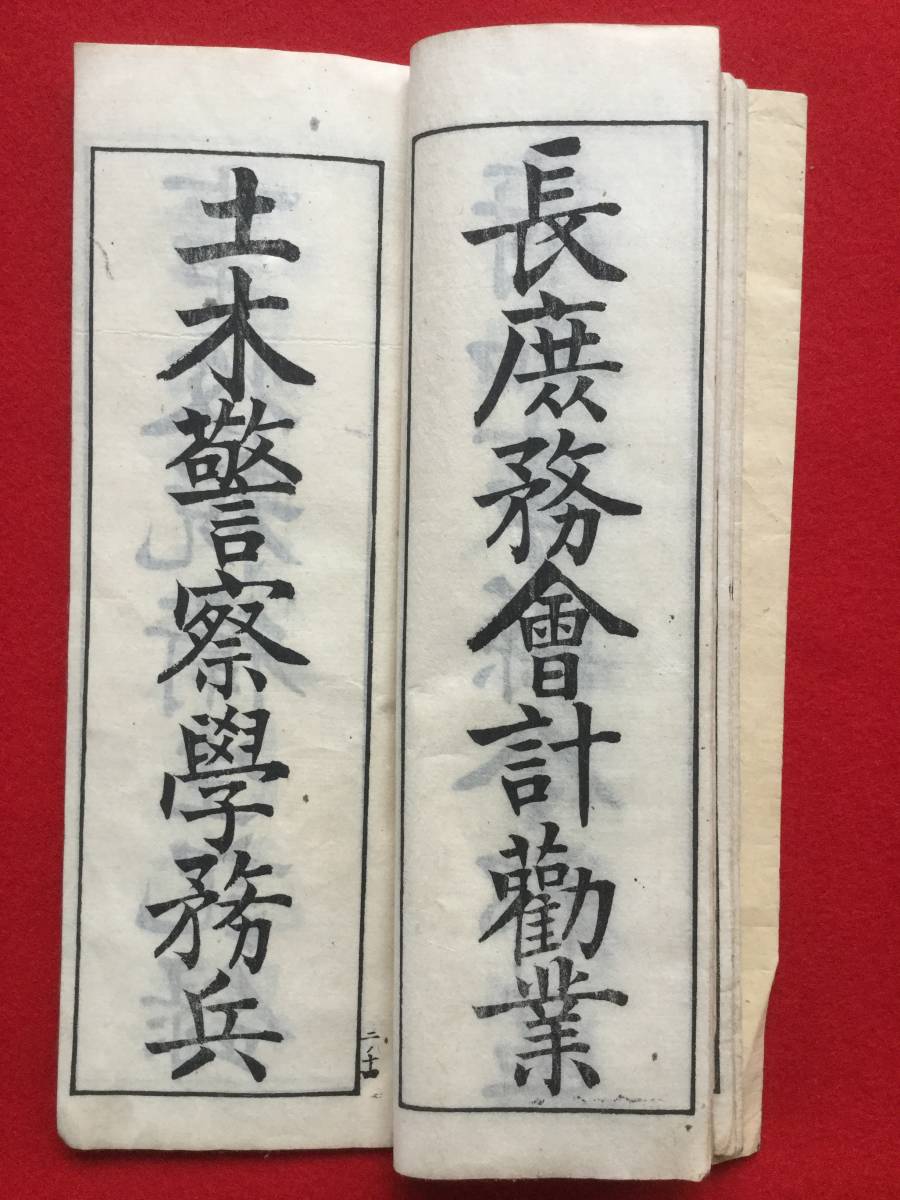 長庶務會計勸業
土木警察學務兵
二ノ十四